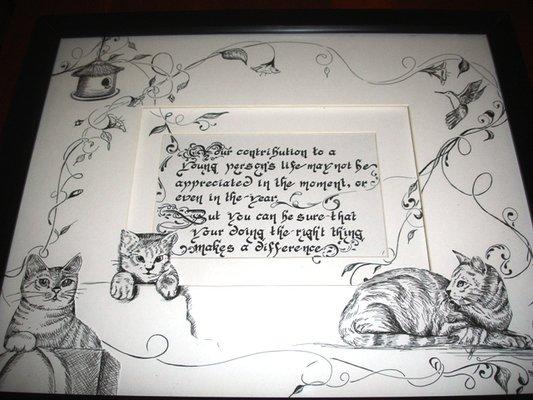 Your contribution to a
young person's life may not be
appreciated in the moment, or
even in the year.
But you can be sure that
your doing the right thing
makes a difference.